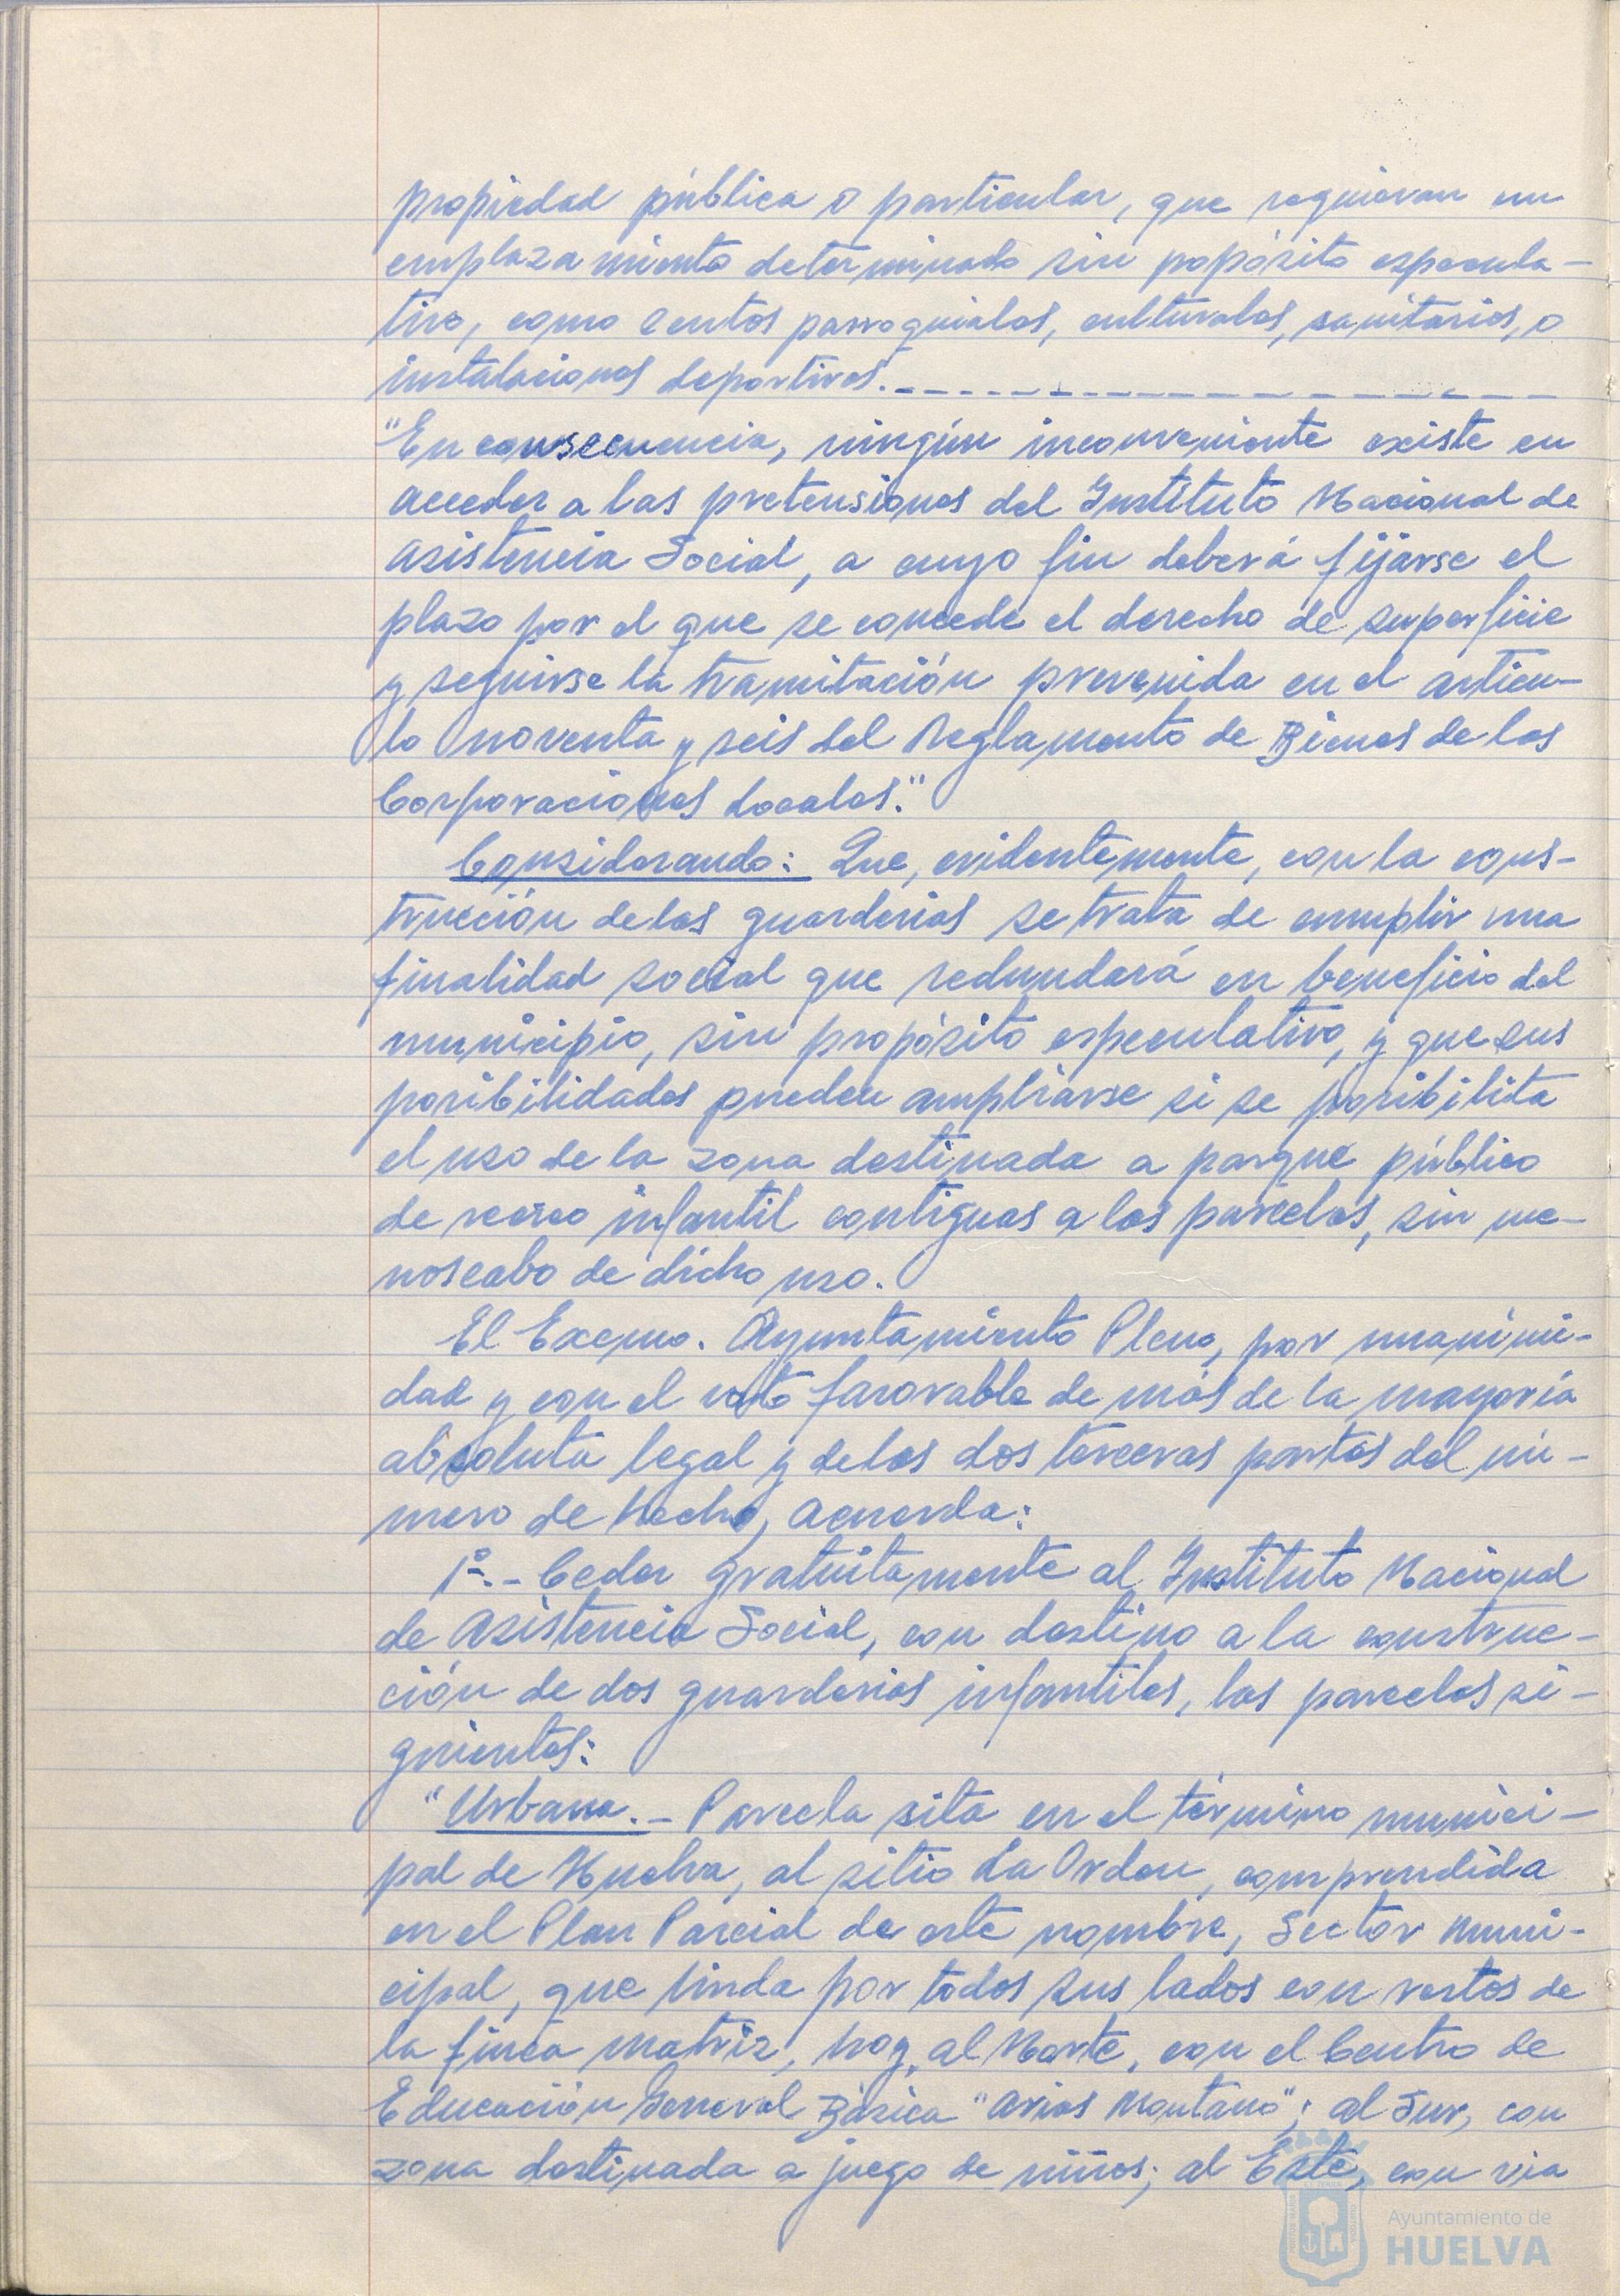 propiedad pública o particular, que requieran un
emplazamiento determinado sin popósito especula-
tivo, como centos parroquiales, culturales, sanitarios, o
instalaciones deportivas.
"En consecuencia, ningún inconveniente existe en
acceder a las pretensiones del Instituto Nacional de
Asistencia Social, a cuyo fin deberá fijarse el
plazo por el que se concede el derecho de superficie
y seguirse la tramitación prevenida en el artícu-
lo noventa y seis del Reglamento de Bienes de las
Corporaciones Locales."
Considerando: Que, evidentemente, con la cons-
trucción de las guarderias se trata de cumplir una
finalidad social que redundará en beneficio del
municipio, sin propósito especulativo, y que sus
posibilidades pueden ampliarse si se posibilita
el uso de la zona destinada a parque público
de recreo infantil contiguas a las parcelas, sin me-
noscabo de dicho uso.
El Excmo. Ayuntamiento Pleno, por unanimi-
dad y con el voto favorable de más de la mayoría
absoluta legal y de las dos terceras partes del nú-
mero de hecho, acuerda:
1º.- Ceder gratuitamente al Instituto Nacional
de Asistencia Social, con destino a la construc-
ción de dos guarderias infantiles, las parcelas si-
guientes:
"Urbana.- Parcela sita en el término munici-
pal de Huelva, al sitio La Orden, comprendida
en el Plan Parcial de este nombre, Sector Muni-
cipal, que linda por todos sus lados con restos de
la finca matriz, hoy, al Norte, con el Centro de
Educación General Básica "Arias Montano"; al Sur, con
zona destinada a juego de niños; al Este, con via
Ayuntamiento de
HUELVA